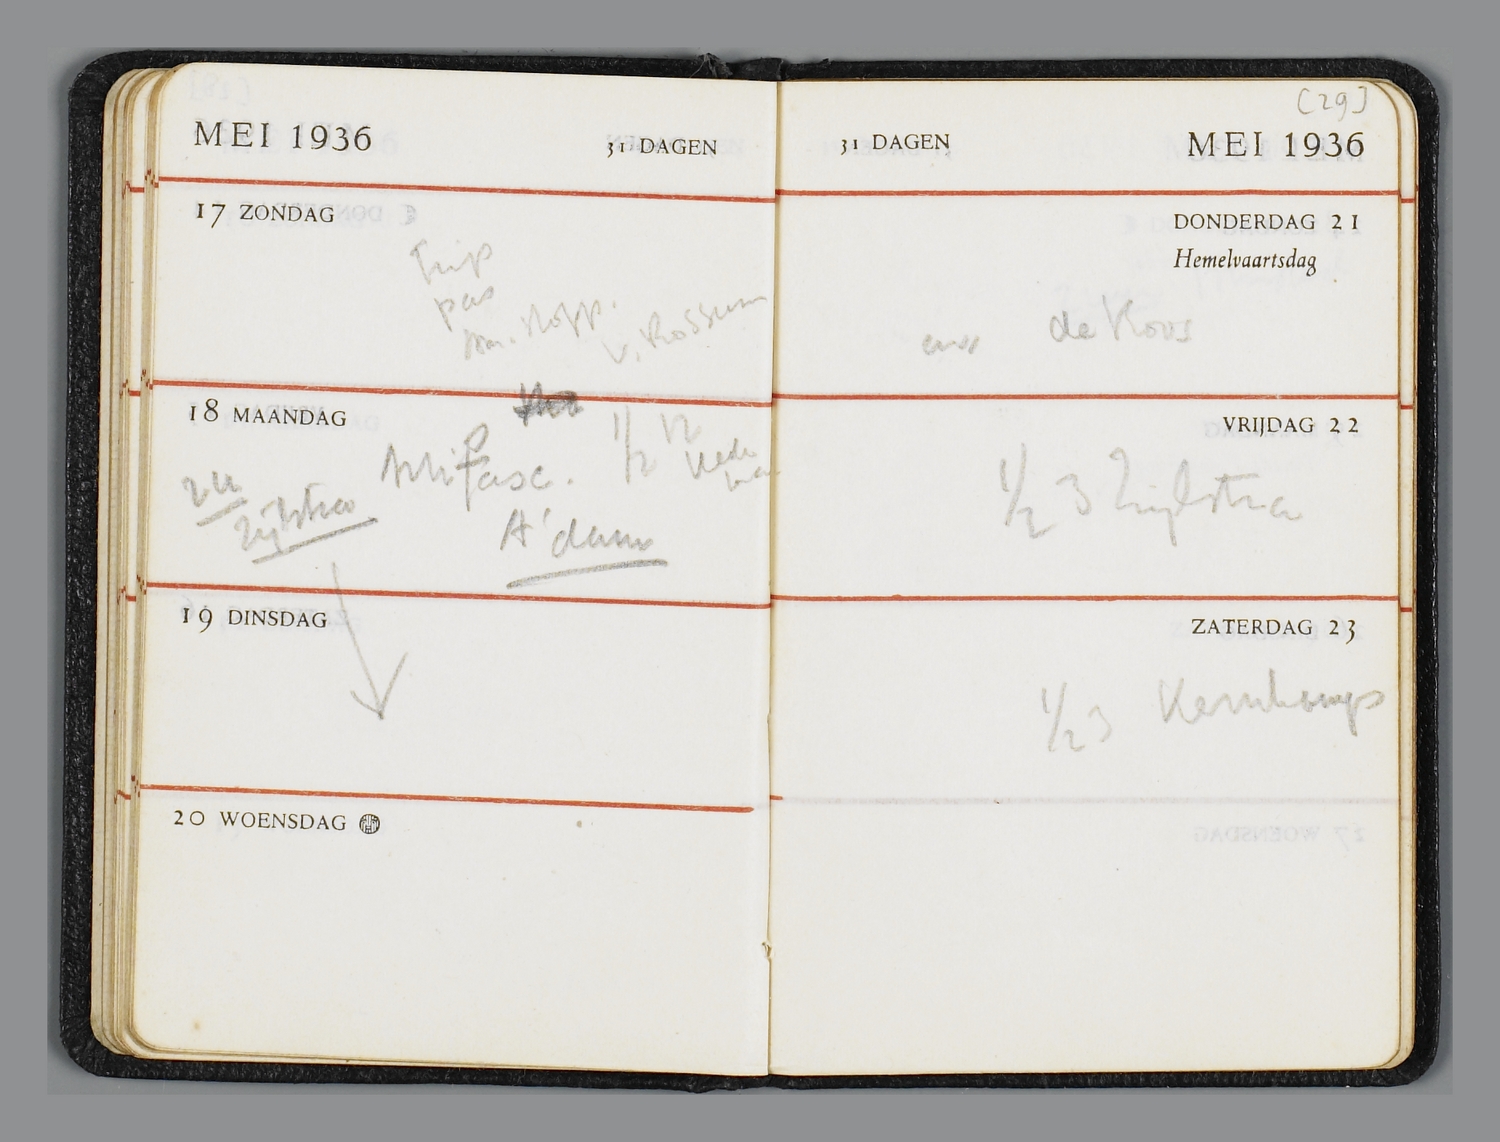 MEI 1936 31 DAGEN
17 ZONDAG
Trip
pas
v. Rossum
18 MAANDAG
Zijlstra
Antifasc.
1/2
A'dam
19 DINSDAG
20 WOENSDAG
[29]
31 DAGEN MEI 1936
DONDERDAG 21
Hemelvaartsdag
de Roos
VRIJDAG 22
1/2 3 Zijlstra
ZATERDAG 23
1/2 3 Kernkamp